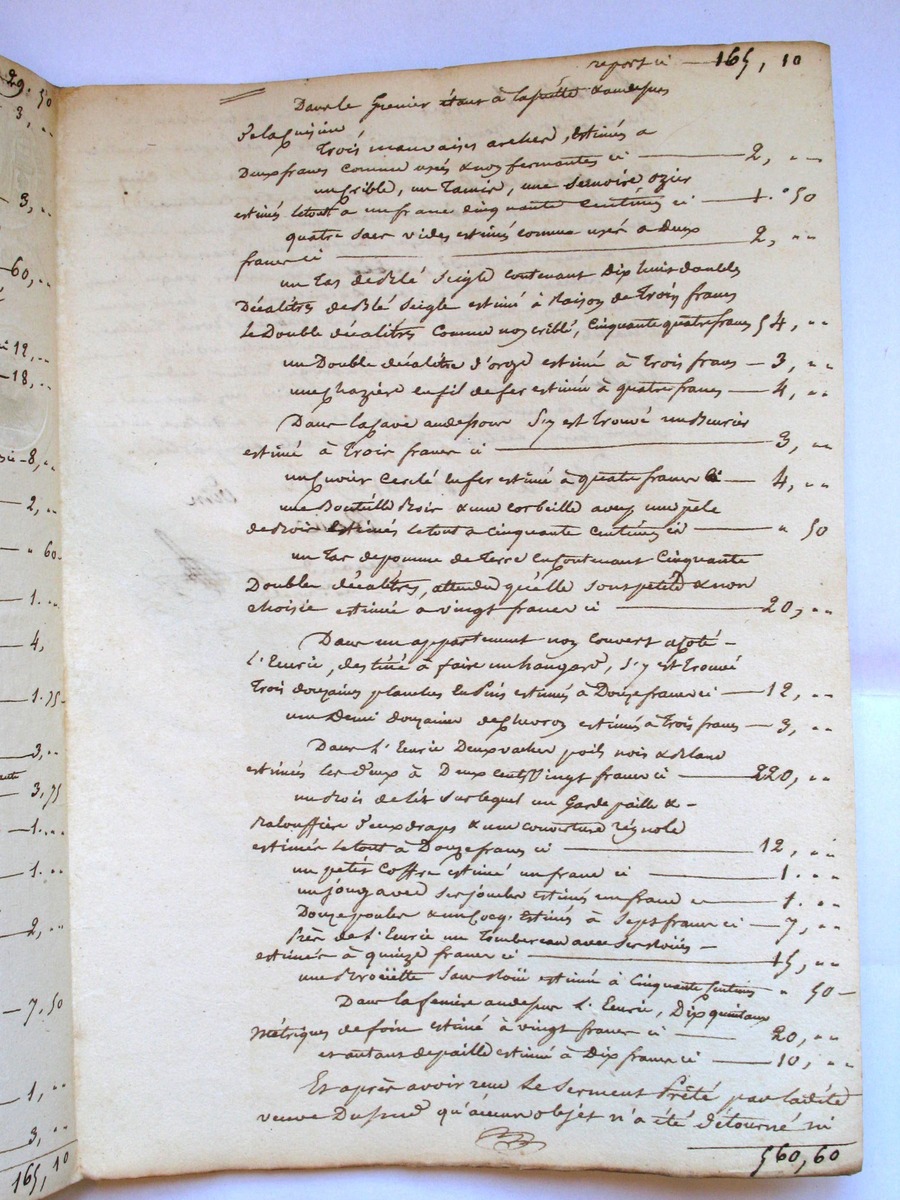 29. 50
3, ..
3, ..
60, ..
12, ..
18, ..
8, ..
2, ..
" 60
1. ..
4,
1. 75
3, ..
3, 75
1. ..
1. ..
2, ..
7, 50
1, ..
3, ..
165, 10
report ci — 165, 10
Dans le Grenier étant à
de la cuisine
Trois mauvaises arches, estimés a
Deux francs comme usés & non fermantes ci — 2, ..
un crible, un Tamis, une ozier
estimés le tout a un franc cinquante centimes ci — 1. 50
quatre sacs vides estimés comme usés a deux
francs ci — 2, ..
un Tas de Blé Seigle contenant Dix huit doubles
Décalitres de Blé Seigle estimé à Raison de Trois francs
Le Double décalitres comme non criblé, Cinquante quatre francs 54, ..
un Double décalitre d'orge estimé à trois francs — 3, ..
une en fil de fer estimée à quatre francs — 4, ..
Dans la cave s'y est trouvé un
estimé à Trois francs ci — 3, ..
un Cuvier Cerclé en fer estimé à quatre francs ci — 4, ..
une Bouteille & une corbeille avec une pèle
de Bois estimés le tout a cinquante centimes ci — " 50
un Tas de pomme de terre en contenant Cinquante
Doubles décalitres, attendu qu'elle sons petite & non
choisie estimée a vingt francs ci — 20, ..
Dans un appartement non couvert a coté —
l'Eurie, destiné à faire un hangard, s'y est trouvé
Trois douzaines planches en Pins estimés à Douze francs ci — 12, ..
une Demi douzaine de chevrons estimés à Trois francs — 3, ..
Dans l'Eurie Deux vaches poils noir & Blanc
estimés les deux à Deux cents vingt francs ci — 220, ..
un Bois de lit sur lequel un Garde paille & —
Baloussière deux draps & une couverture
estimés le tout à Douze francs ci — 12, ..
un petit Coffre estimé un franc ci — 1. ..
un joug avec ses estimés un franc ci — 1. ..
Douze poules & un Cocq. Estimés à Sept francs ci — 7, ..
Près de l'Eurie un Tombereau avec ses Roües —
estimés à quinze francs ci — 15, ..
une Broüette Sans Roüe estimé à Cinquante Centimes " 50 —
Dans la fenière l'Eurie, Dix quintaux
Métriques de foin estimé à vingt francs ci — 20, ..
et autant de paille estimé à Dix francs ci — 10, ..
Et après avoir reçu Le Serment Prêté par la dite
veuve qu'aucun objet n'a été détourné ni
560,60